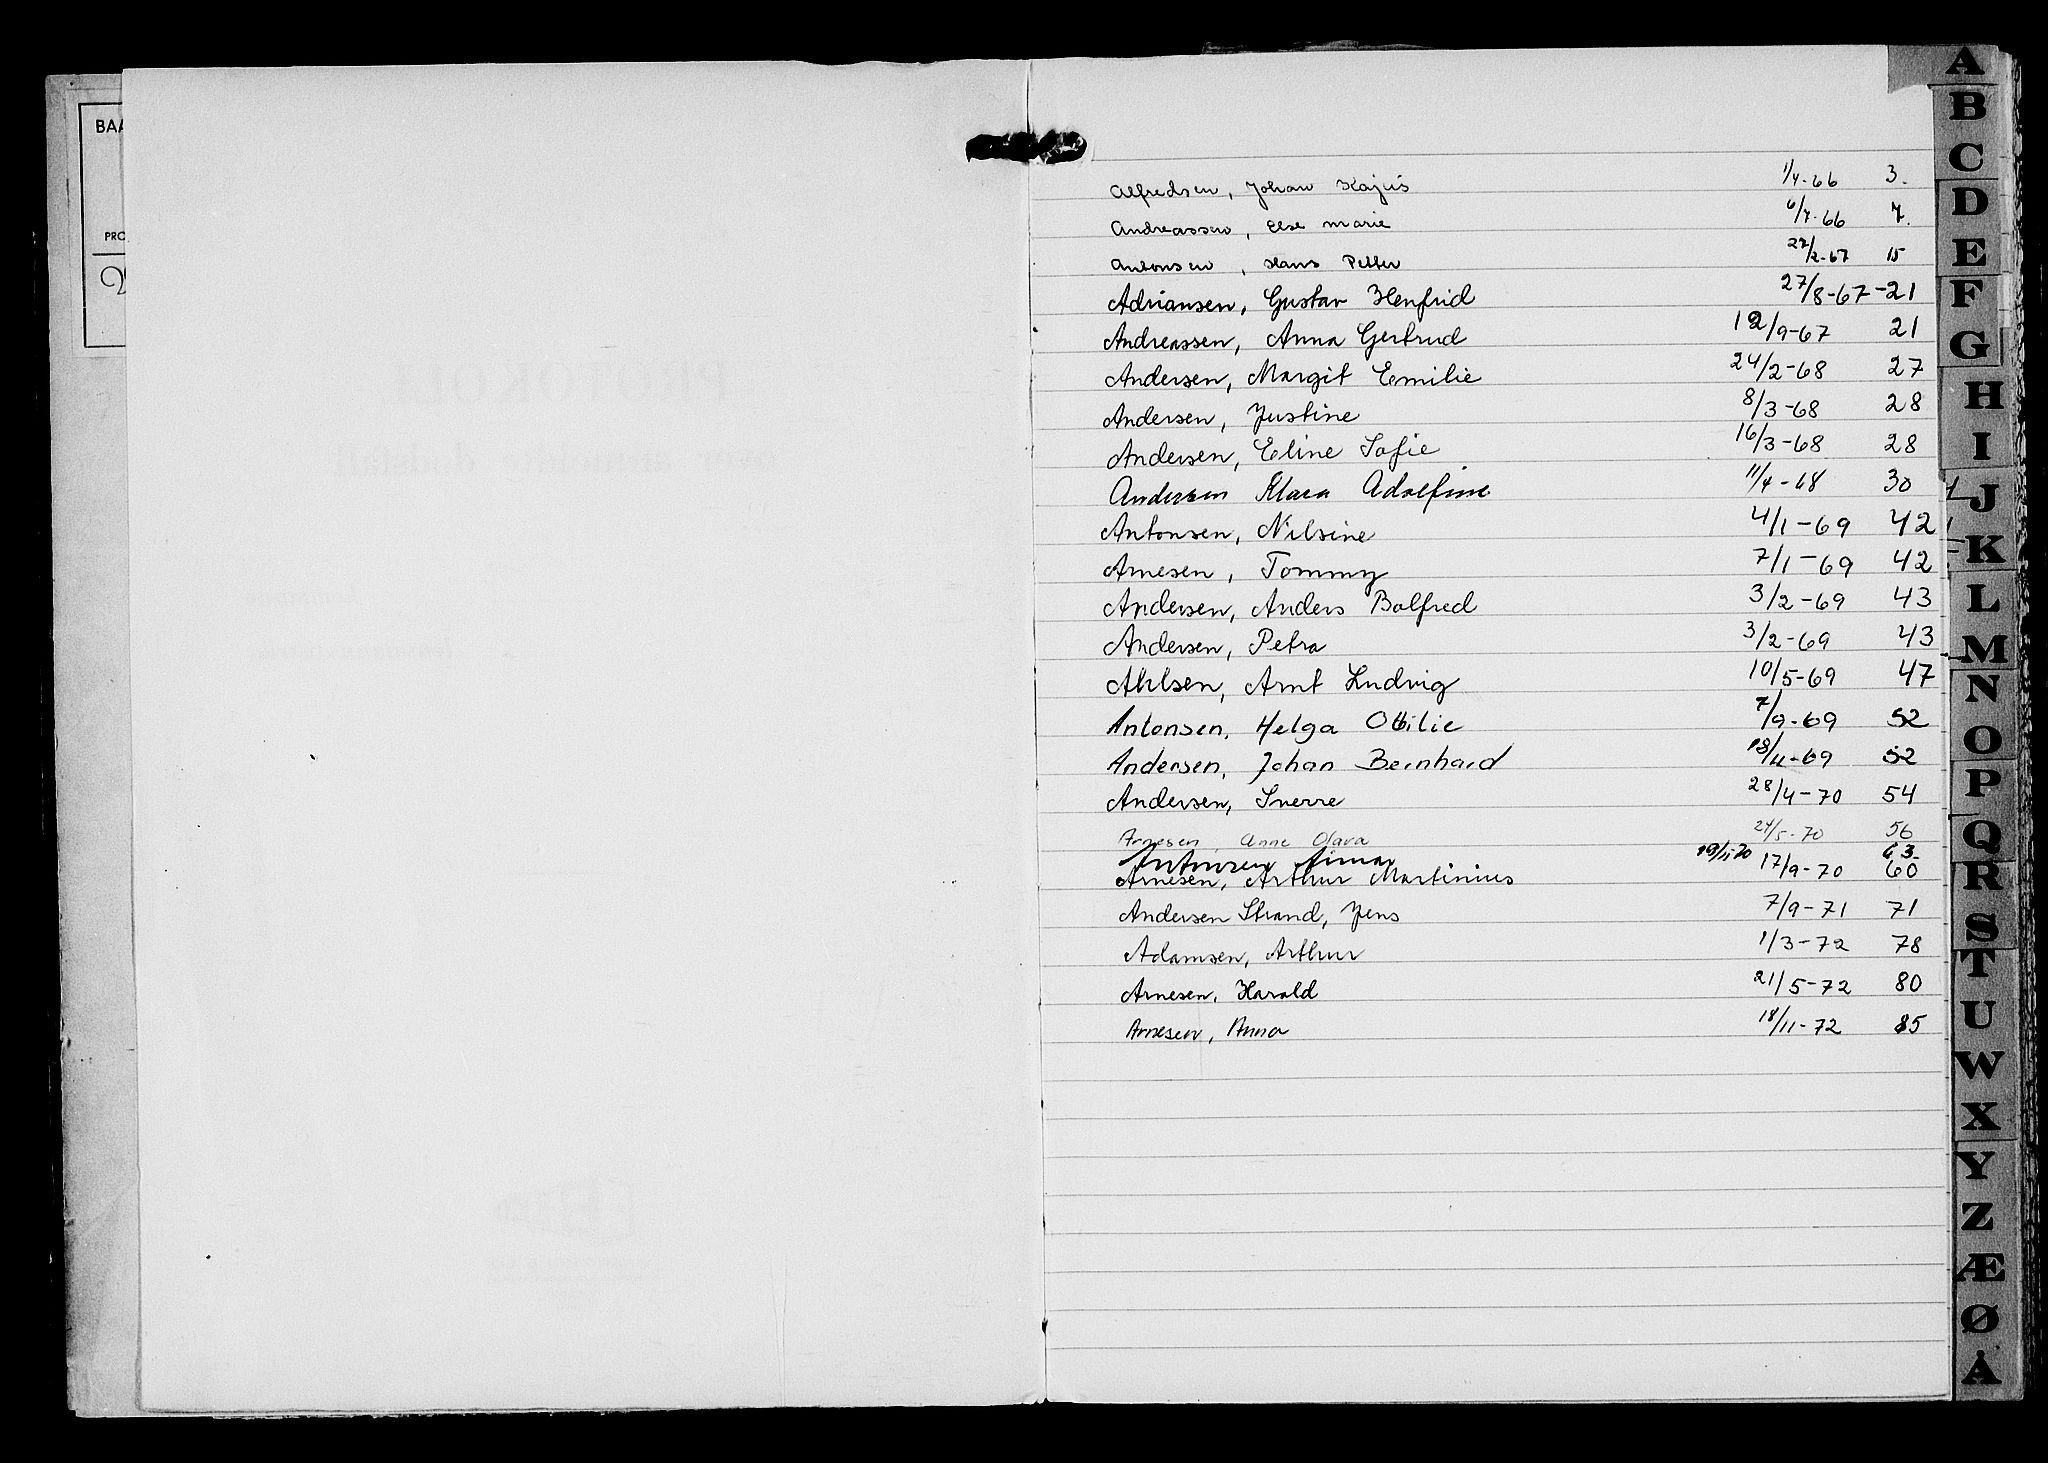 BAA
PRO
Alfredsen, Johan Kajus 1/4-66 3.
Andreassen, Else Marie 6/7-66 7.
Antonsen, Hans Petter 27/2-67 15
Adriansen, Gustav Henfrid 27/8-67-21
Andreassen, Anna Gertrud 12/9-67 21
Andersen, Margit Emilie 24/2-68 27
Andersen, Justine 8/3-68 28
Andersen, Eline Sofie 16/3-68 28
Andersen Klara Adolfine 11/4-68 30
Antonsen, Nilsine 4/1-69 42
Arnesen, Tommy 7/1-69 42
Andersen, Anders Bolfred 3/2-69 43
Andersen, Petra 3/2-69 43
Ahlsen, Arnt Ludvig 10/5-69 47
Antonsen, Helga Ottilie 7/9-69 52
Andersen, Johan Bernhard 18/11-69 52
Andersen, Sverre 28/4-70 54
Arnesen, Anne Olava 24/5-70 56
Antonsen Einar 19/11-70 63
Arnesen, Arthur Martinius 17/9-70 60
Andersen Strand, Jens 7/9-71 71
Adamsen, Arthur 1/3-72 78
Arnesen, Harald 21/5-72 80
Arnesen, Anna 18/11-72 85
A
B
C
D
E
F
G
H
I
J
K
L
M
N
O
P
Q
R
S
T
U
W
X
Y
Z
Æ
Ø
Å